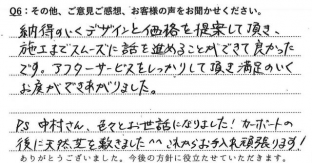 Q6：その他、ご意見ご感想、お客様の声をお聞かせください。
納得のいくデザインと価格を提案して頂き、
施工までスムーズに話を進めることができて良かった
です。アフターサービスもしっかりして頂き満足のいく
お庭ができあがりました。
P.S 中村さん、色々とお世話になりました！カーポートの
後に天然芝を敷きました^^これからお手入れ頑張ります！
ありがとうございました。今後の方針に役立たせていただきます。